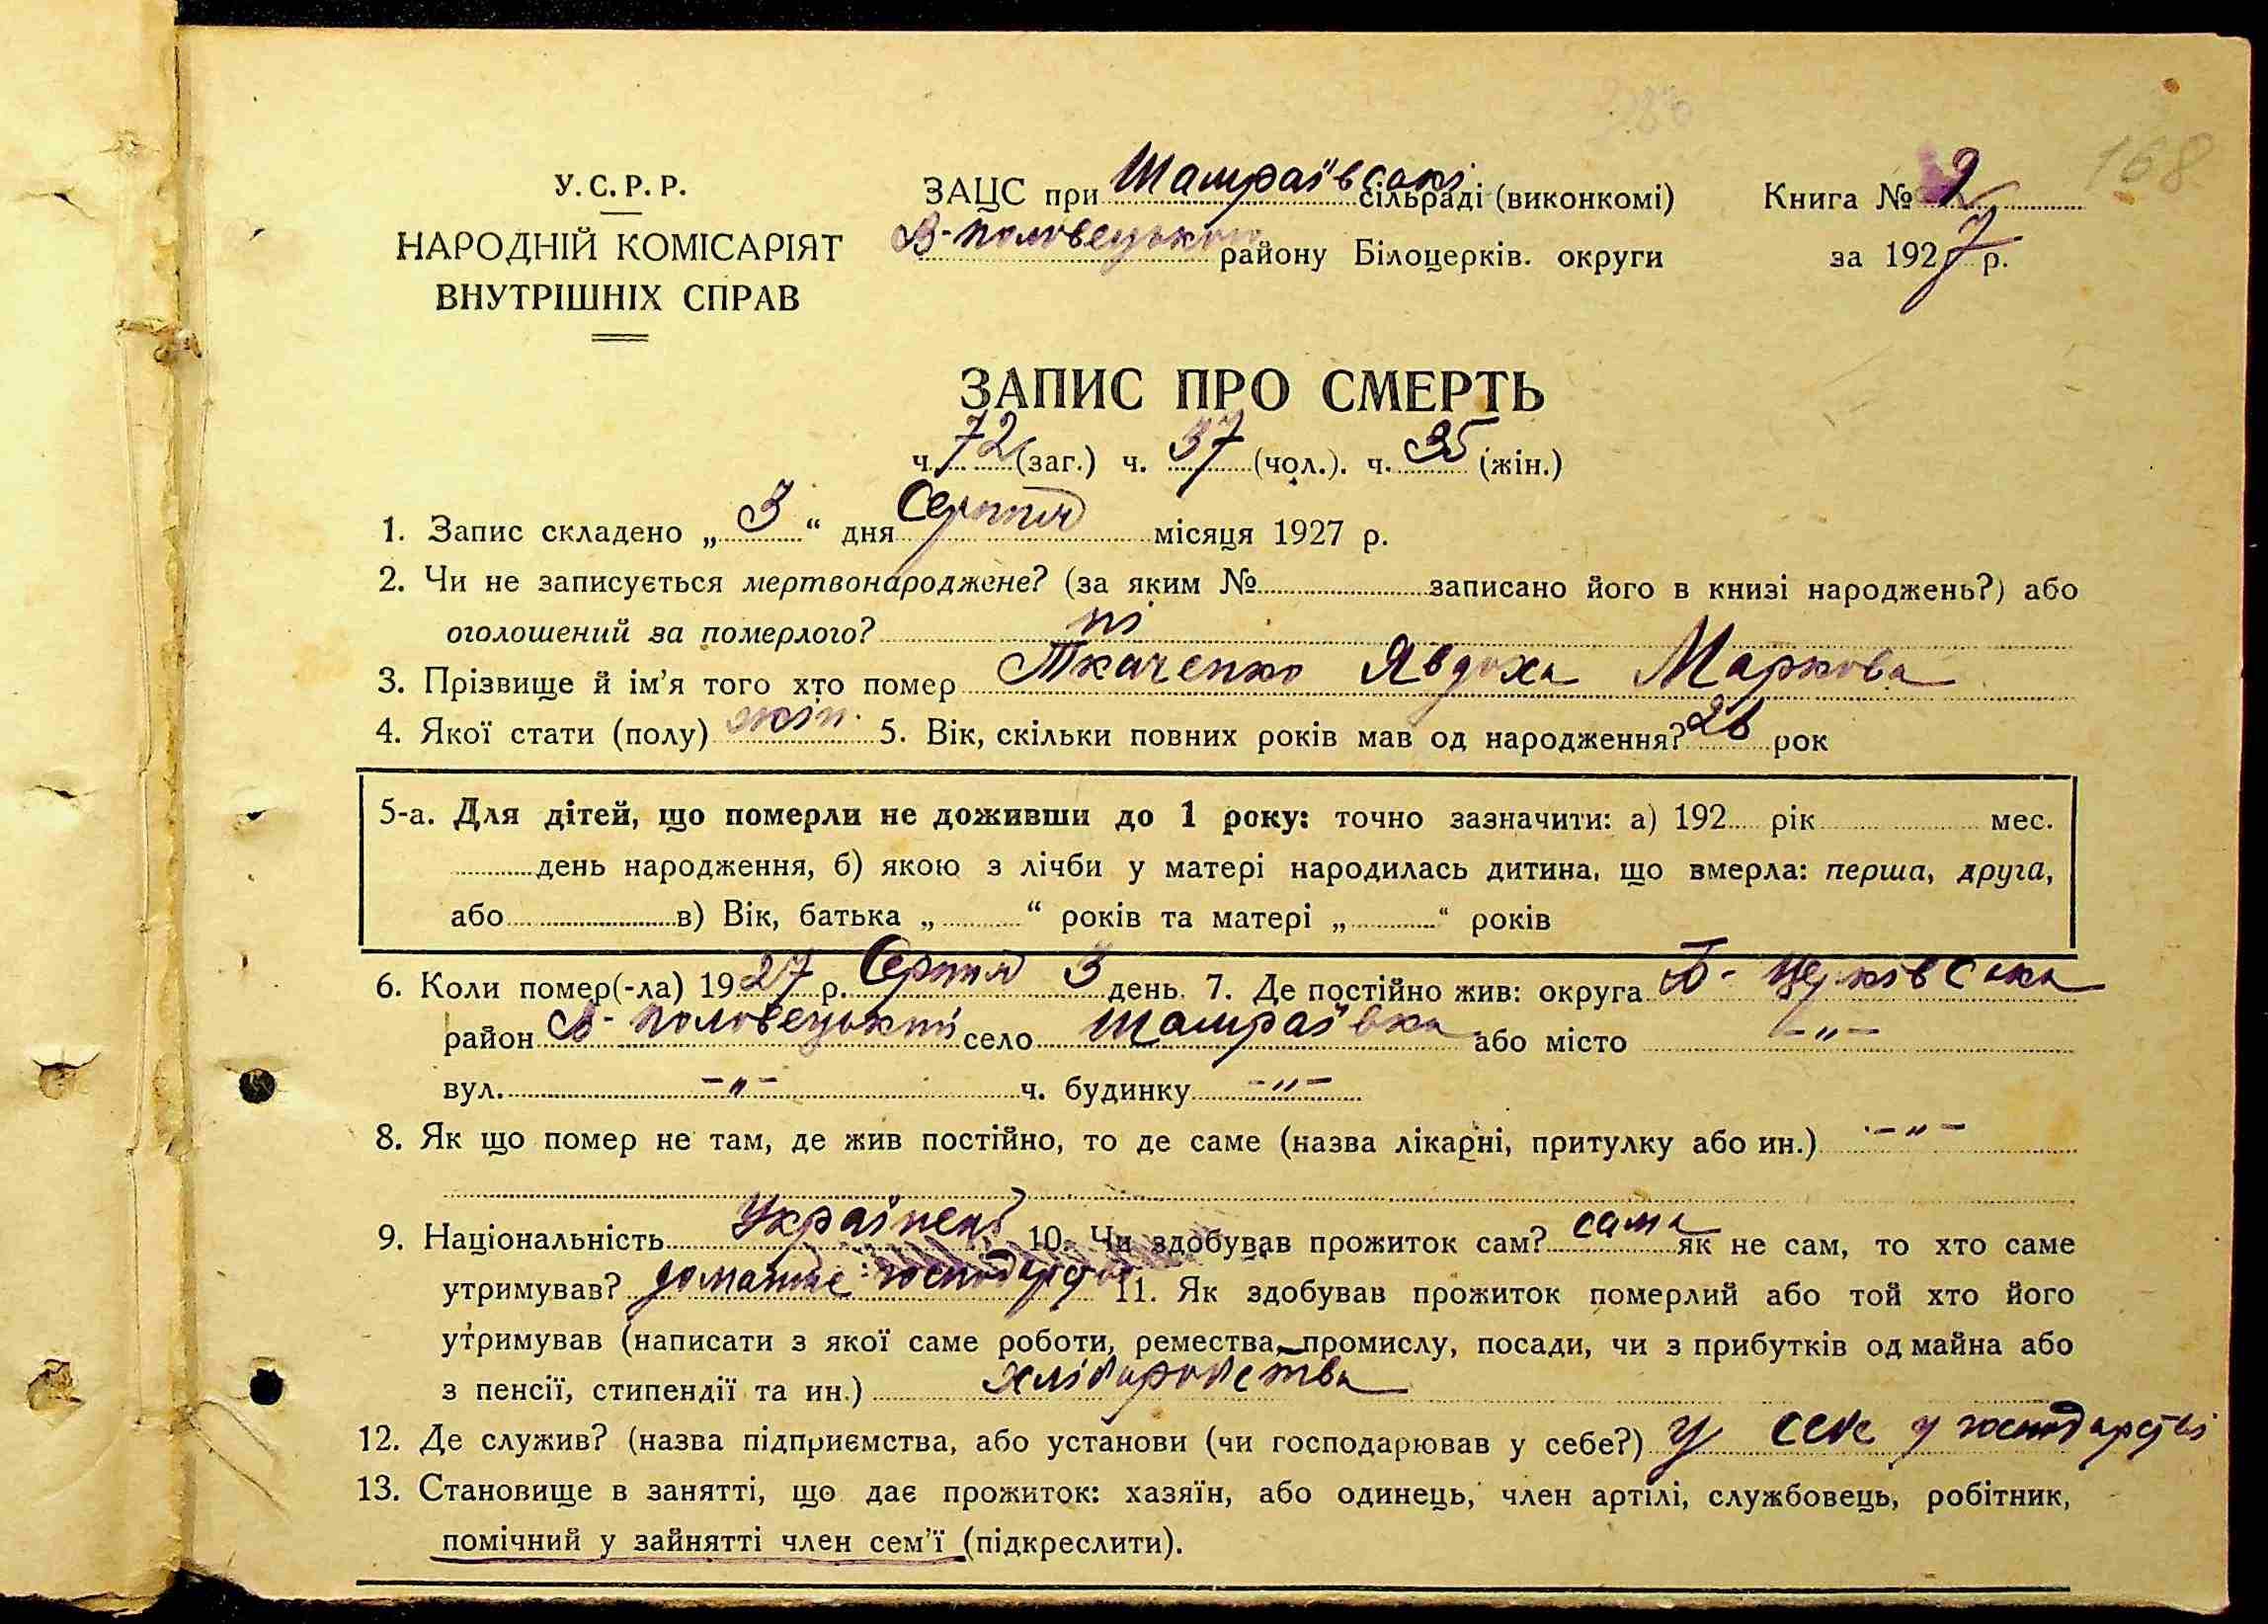 168
У.С.Р.Р.
НАРОДНІЙ КОМІСАРІЯТ
ВНУТРІШНІХ СПРАВ
ЗАЦС при Шамраївській сільраді (виконкомі)
В-Половецького району Білоцерків. округи
Книга № 2
за 1927 р.
ЗАПИС ПРО СМЕРТЬ
ч. 72 (заг.) ч. 37 (чол.). ч. 35 (жін.)
1. Запис складено „ 3 “ дня Серпня місяця 1927 р.
2. Чи не записується мертвонароджене? (за яким № записано його в книзі народжень?) або
оголошений за померлого? ні
3. Прізвище й ім’я того хто помер Ткаченко Явдоха Маркова
4. Якої стати (полу) жін. 5. Вік, скільки повних років мав од народження? рок
5-а. Для дітей, що померли не доживши до 1 року: точно зазначити: а) 192 рік мес.
день народження, б) якою з лічби у матері народилась дитина, що вмерла: перша, друга,
або в) Вік, батька „ “ років та матері „ “ років
6. Коли помер(-ла) 1927 р. Серпня 3 день. 7. Де постійно жив: округа Б-Церківська
район В-Половецький село Шамраївка або місто -„-
вул. -„- ч. будинку -„-
8. Як що помер не там, де жив постійно, то де саме (назва лікарні, притулку або ин.) -„-
9. Національність Українец 10. Чи здобував прожиток сам? сама як не сам, то хто саме
утримував? домашнє господарство 11. Як здобував прожиток померлий або той хто його
утримував (написати з якої саме роботи, ремества, промислу, посади, чи з прибутків од майна або
з пенсії, стипендії та ин.) хліборобства
12. Де служив? (назва підприємства, або установи (чи господарював у себе?) У себе у господарстві
13. Становище в занятті, що дає прожиток: хазяїн, або одинець, член артілі, службовець, робітник,
помічний у зайнятті член сем’ї (підкреслити).